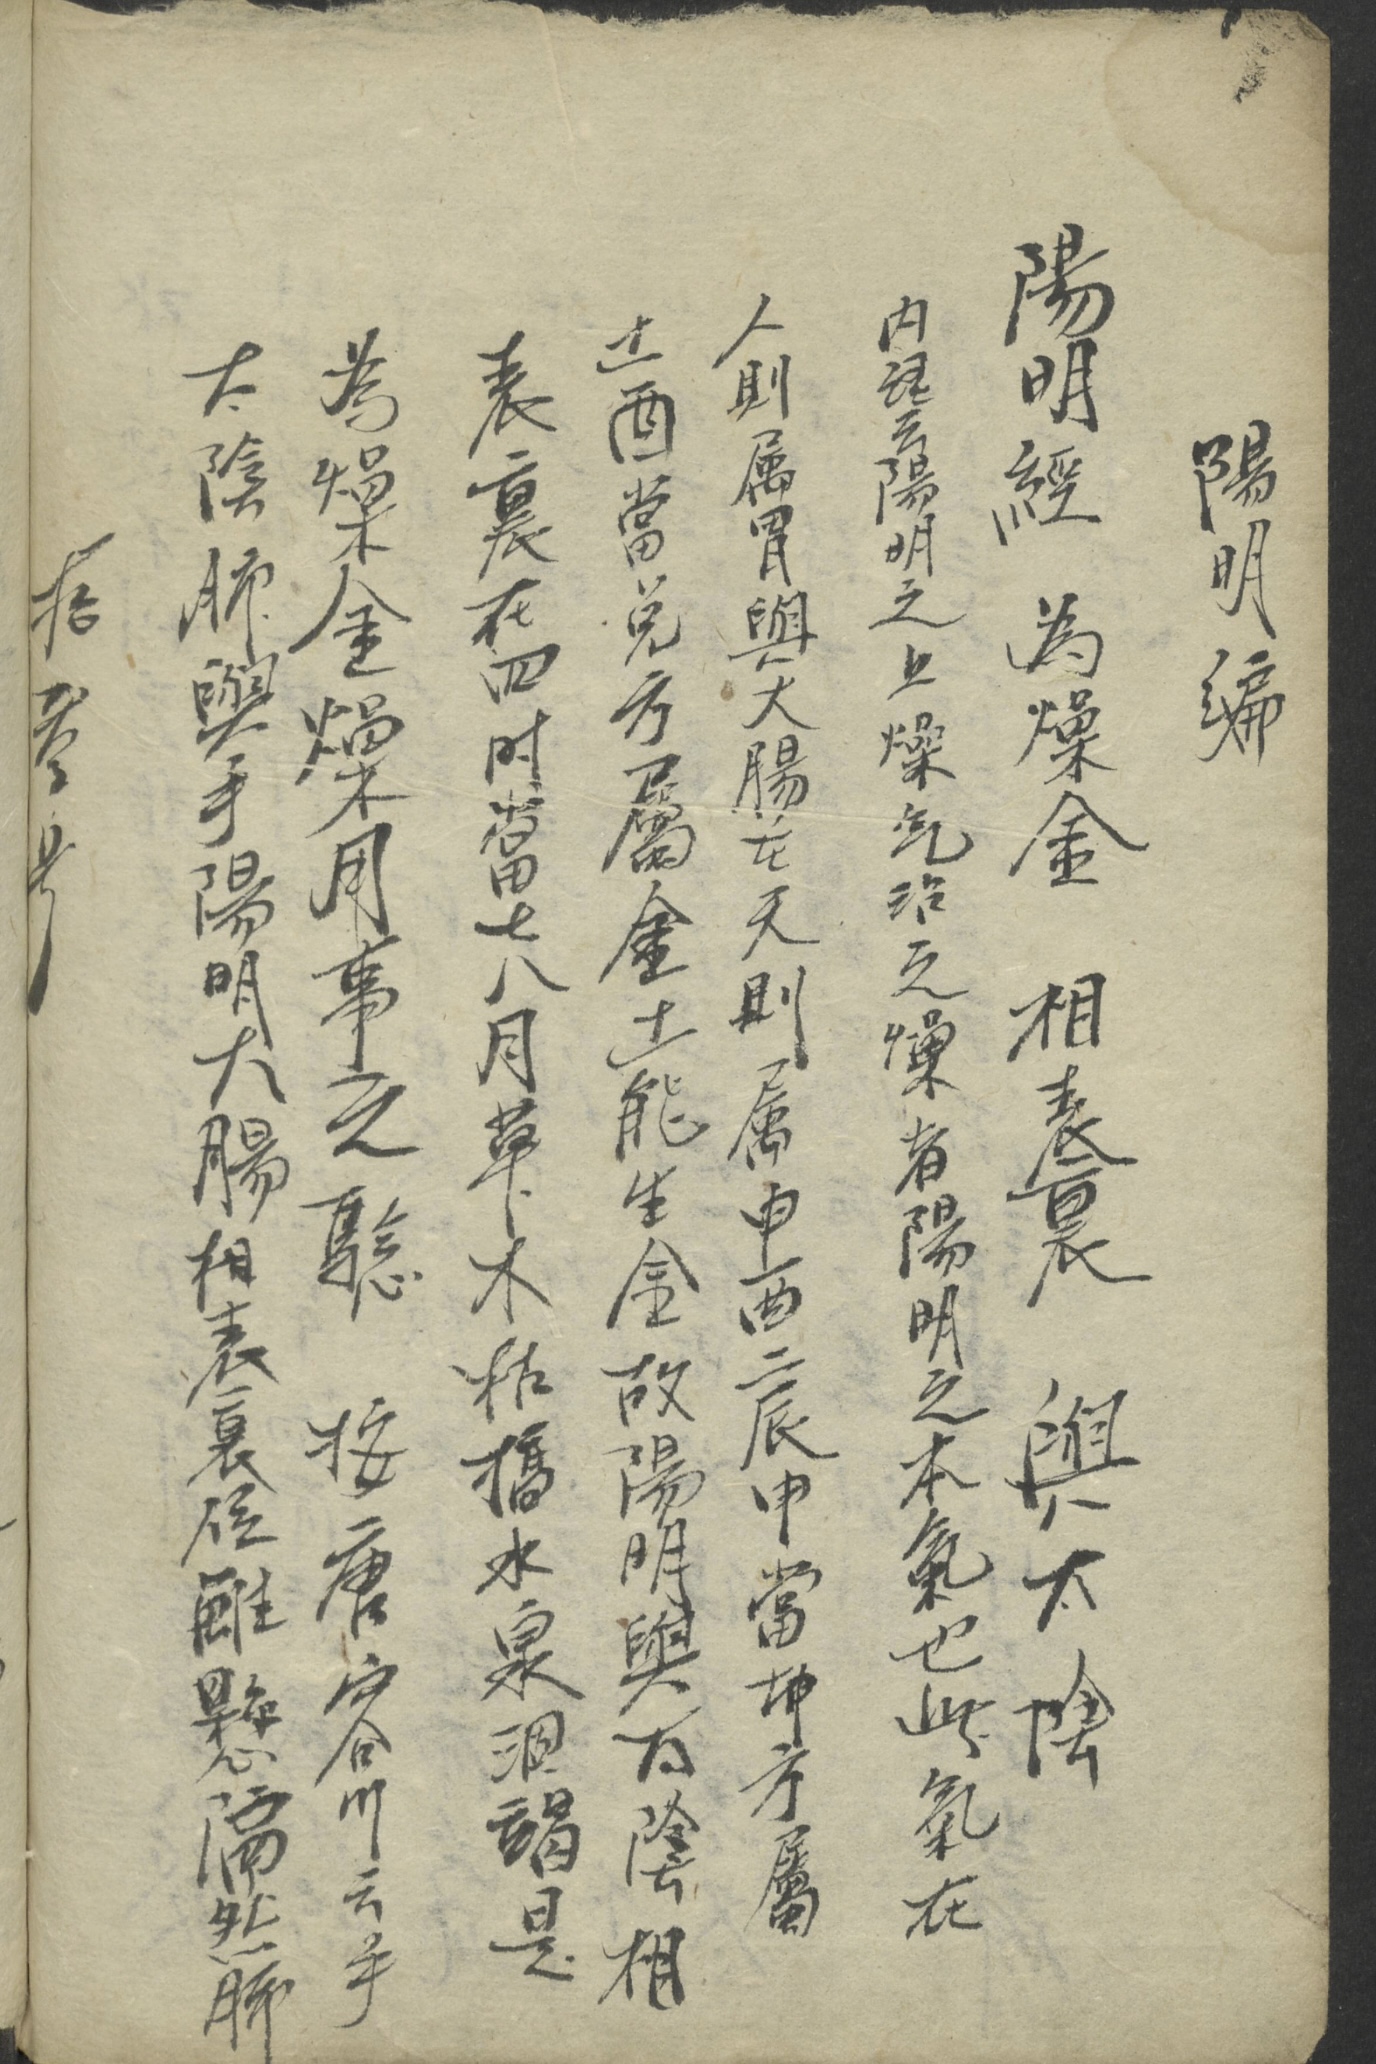 陽明編
陽明經為燥金相表裏與太陰
内経云陽明之上燥气治之燥者陽明之本氣也此氣在
人則属胃與大腸在天則属申酉二辰申當坤方屬
土酉當兑方屬金土能生金故陽明與太陰相
表裏在四时當七八月草木枯槁水泉涸竭是
為燥金燥用事之驗 按唐容川云手
太陰肺與手陽明大腸相表裏位雖懸隔然肺